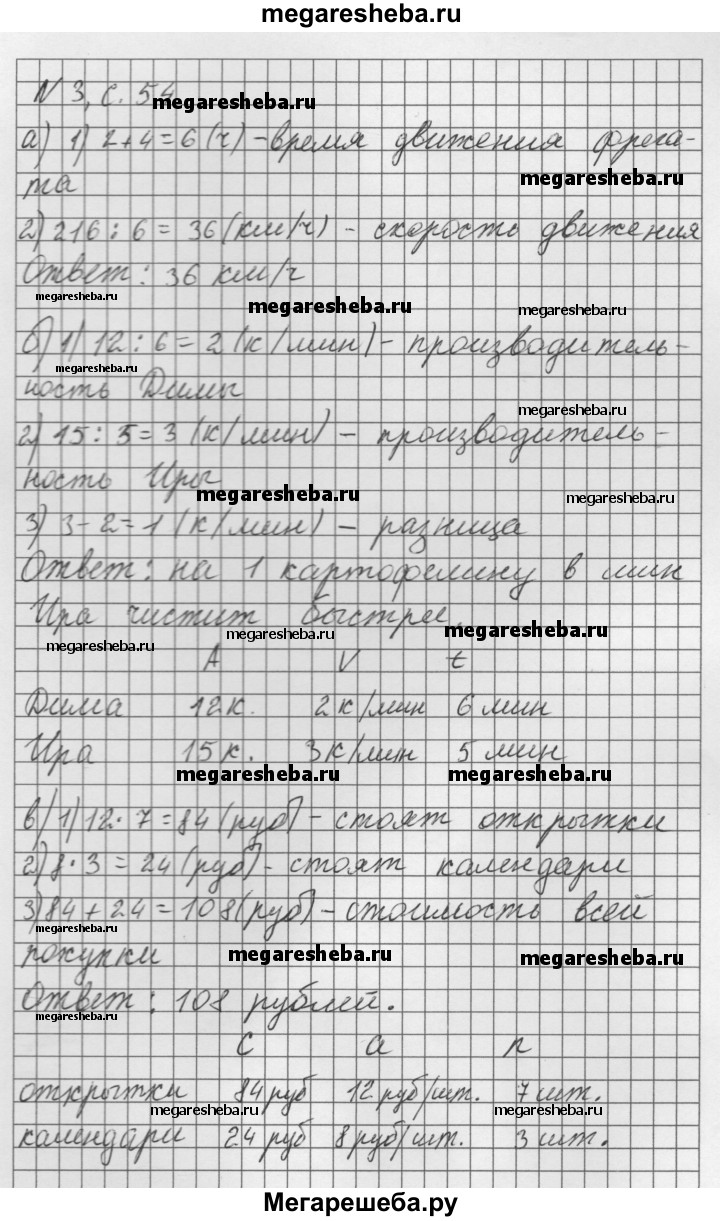 megaresheba.ru
N 3, с. 54
megaresheba.ru
а) 1) 2+4=6(ч)-время движения фрега-
megaresheba.ru
та
2) 216:6=36(км/ч) - скорость движения
Ответ: 36 км/ч
megaresheba.ru
megaresheba.ru
megaresheba.ru
б) 1) 12:6=2(к/мин)- производитель-
megaresheba.ru
ность Димы
megaresheba.ru
2) 15:5=3(к/мин) - производитель-
ность Иры
megaresheba.ru
megaresheba.ru
3) 3-2=1(к/мин) - разница
Ответ: на 1 картофелину в мин
Ира чистит быстрее.
megaresheba.ru
megaresheba.ru
megaresheba.ru
А V t
Дима 12к. 2к/мин 6 мин
Ира 15к. 3к/мин 5 мин
megaresheba.ru
megaresheba.ru
в) 1) 12·7=84(руб)- стоят открытки
2) 8·3=24(руб)- стоят календари
3) 84+24=108(руб)-стоимость всей
megaresheba.ru
покупки
megaresheba.ru
megaresheba.ru
Ответ: 108 рублей.
megaresheba.ru
С а n
открытки 84руб 12руб/шт. 7шт.
megaresheba.ru
megaresheba.ru
megaresheba.ru
календари 24руб 8руб/шт. 3шт.
Мегарешеба.ру